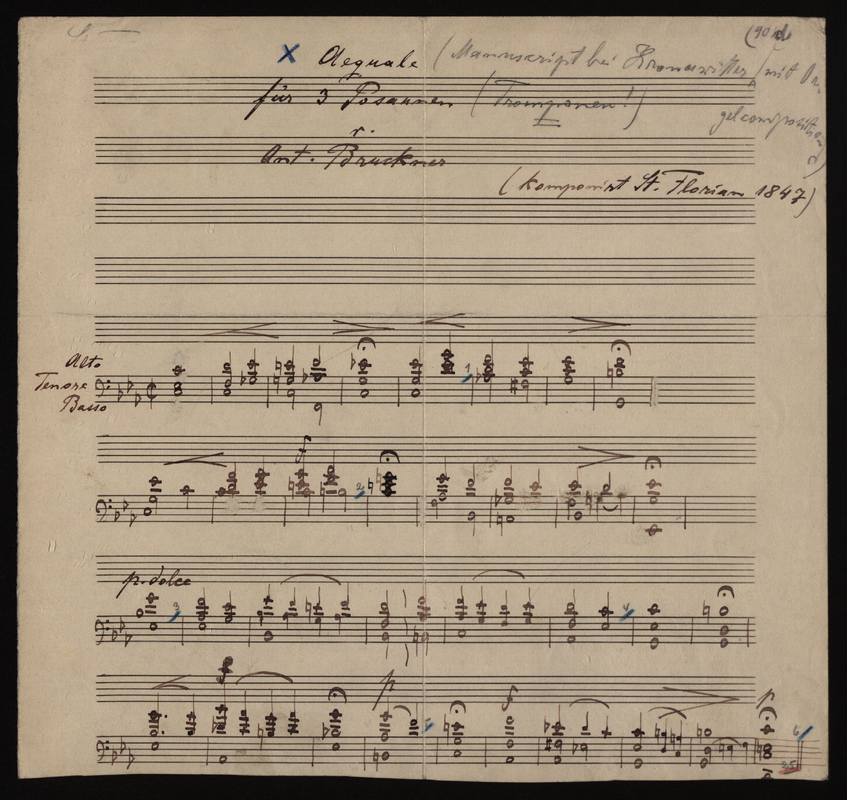 (90 d
X Aequale (Manuscript bei Kronawitter, mit Or-
für 3 Posaunen (Tromponen!) gelcomposition)
v.
Ant. Bruckner
(komponirt St. Florian 1847)
Alto
Tenore
Basso
1
f
2
p. dolce
3
4
p
f
p
5
6
35